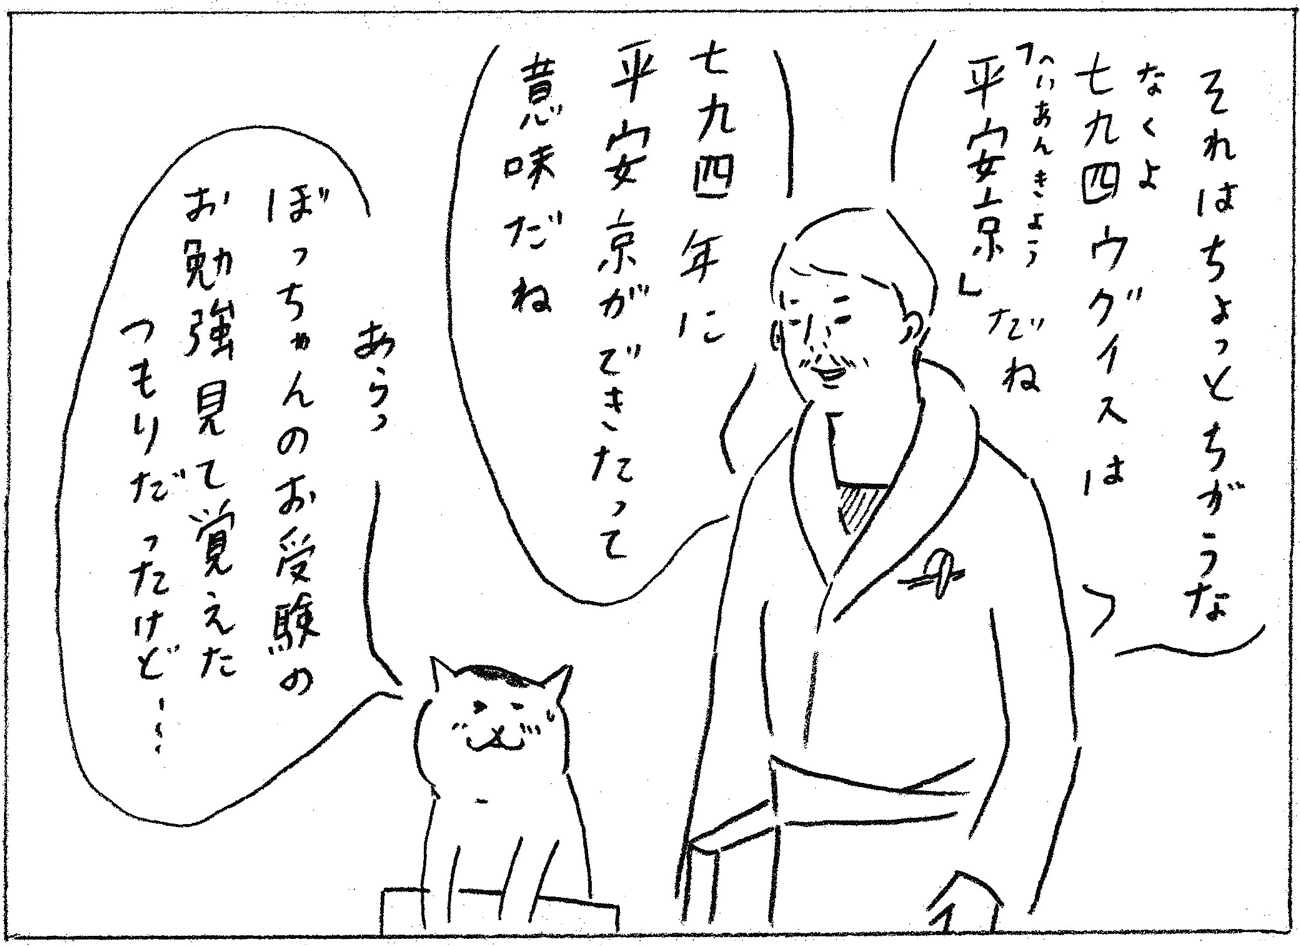 それはちょっとちがうな
なくよ
七九四ウグイスは
へいあんきょう
「平安京」だね
七九四年に
平安京ができたって
意味だね
あらっ
ぼっちゃんのお受験の
お勉強見て覚えた
つもりだったけど…